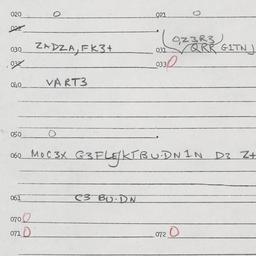 020 0 021 0
030 ZADZA,FK3+ 031 (QZ3R3/QRR G1TNJ
033 0
040 VART3
050 0
060 MOC3X G3FLE/KTBU·DN1N D3 Z+
061 C3 BU·DN
070 0
071 0 072 0